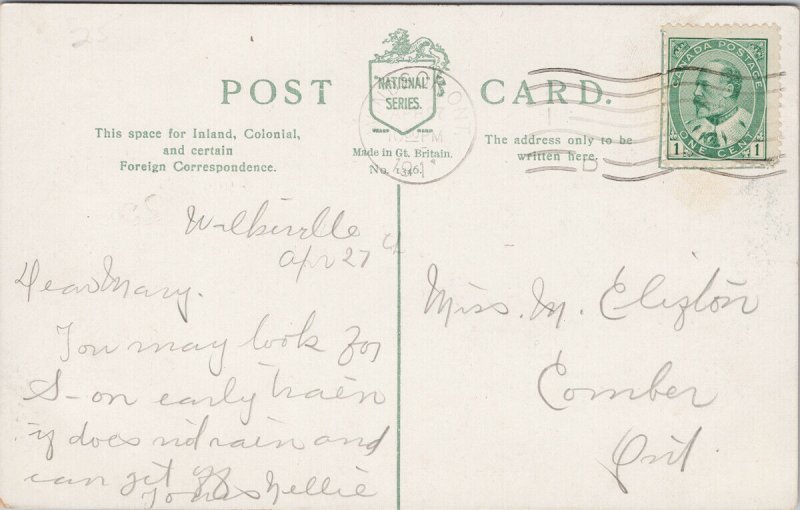 POST CARD.
"NATIONAL"
SERIES.
This space for Inland, Colonial,
and certain
Foreign Correspondence.
Made in Gt. Britain.
No. 1346.
The address only to be
written here.
CANADA POSTAGE
1 ONE CENT 1
ONT
PM
Walkerville
Apr 27
Dear Mary.
You may look for
S- on early train
if does not rain and
can get off
Yours Nellie
Miss. M. Elizton
Comber
Ont